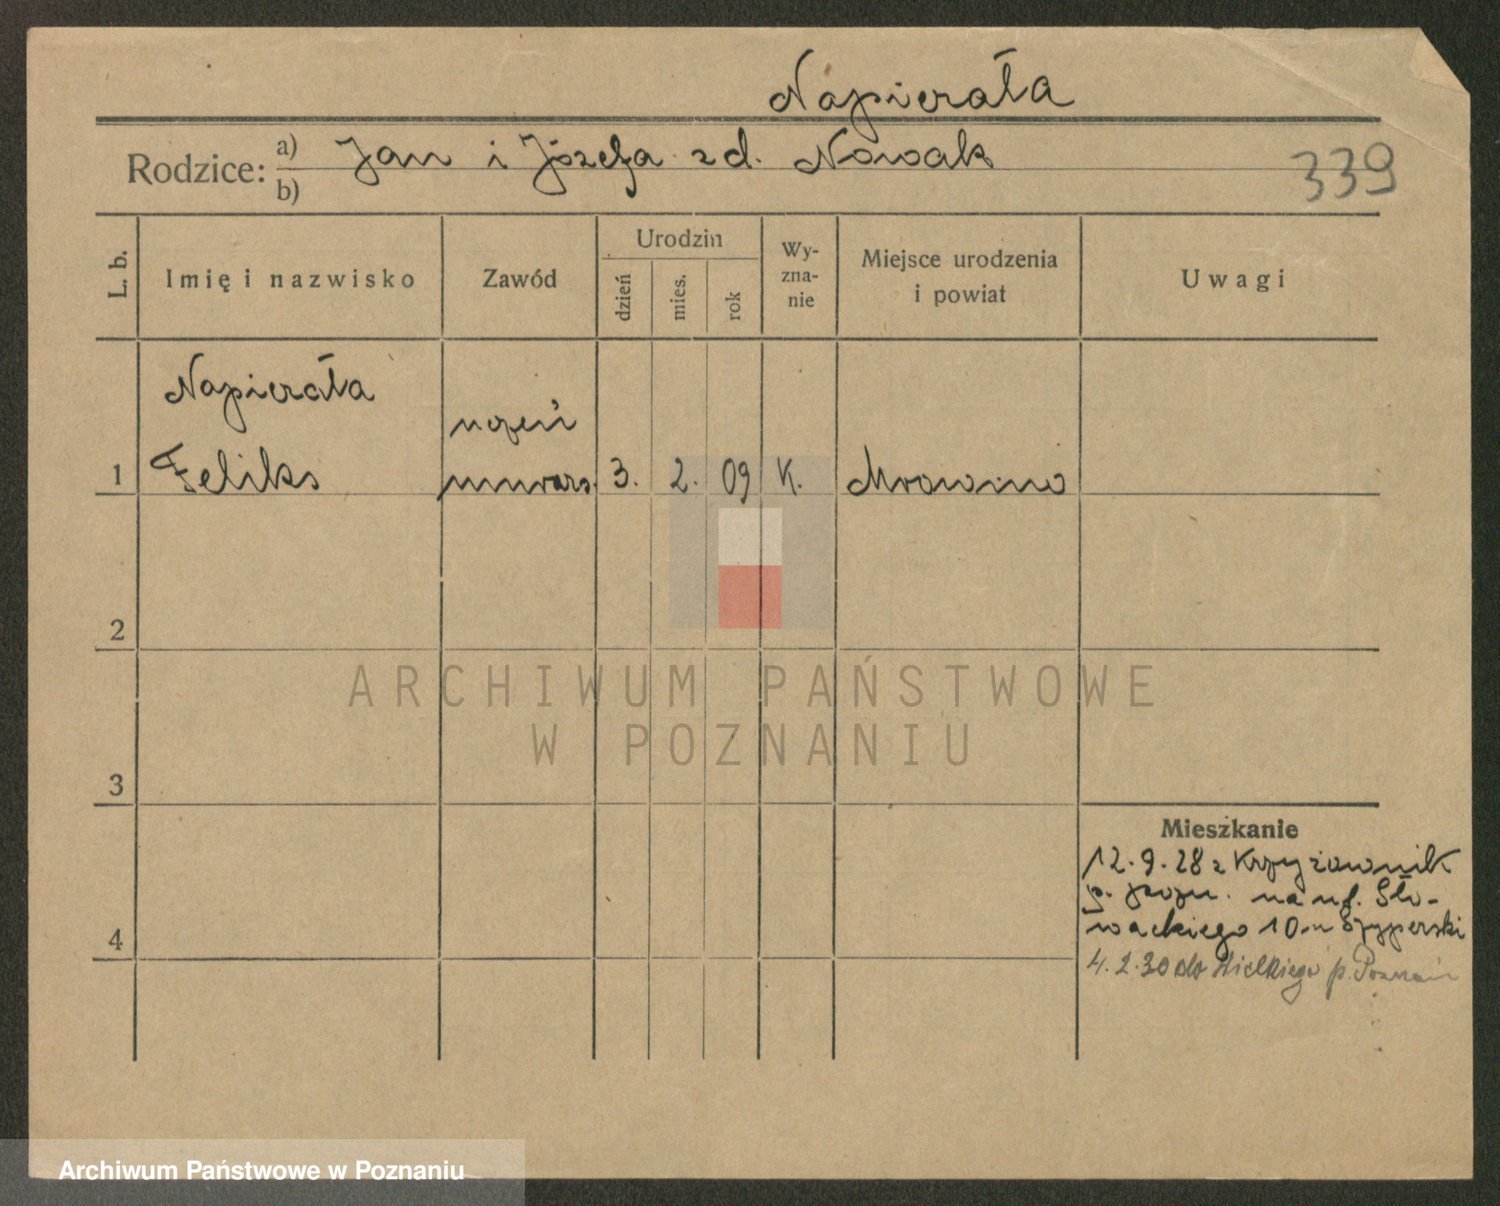 Napierała
Rodzice: a) Jan i Józefa zd. Nowak
b)
339
L. b.
Imię i nazwisko
Zawód
Urodzin
dzień
mies.
rok
Wy-
zna-
nie
Miejsce urodzenia
i powiat
Uwagi
Napierała
uczeń
1 Feliks murars. 3. 2. 09 K. Mrowino
2
3
4
ARCHIWUM PAŃSTWOWE
W POZNANIU
Mieszkanie
12.9.28 z Krzyżownik
p. pozn. na ul. Sło-
wackiego 10 u Szyperski
4.2.30 do Kielkiego p. Poznań
Archiwum Państwowe w Poznaniu